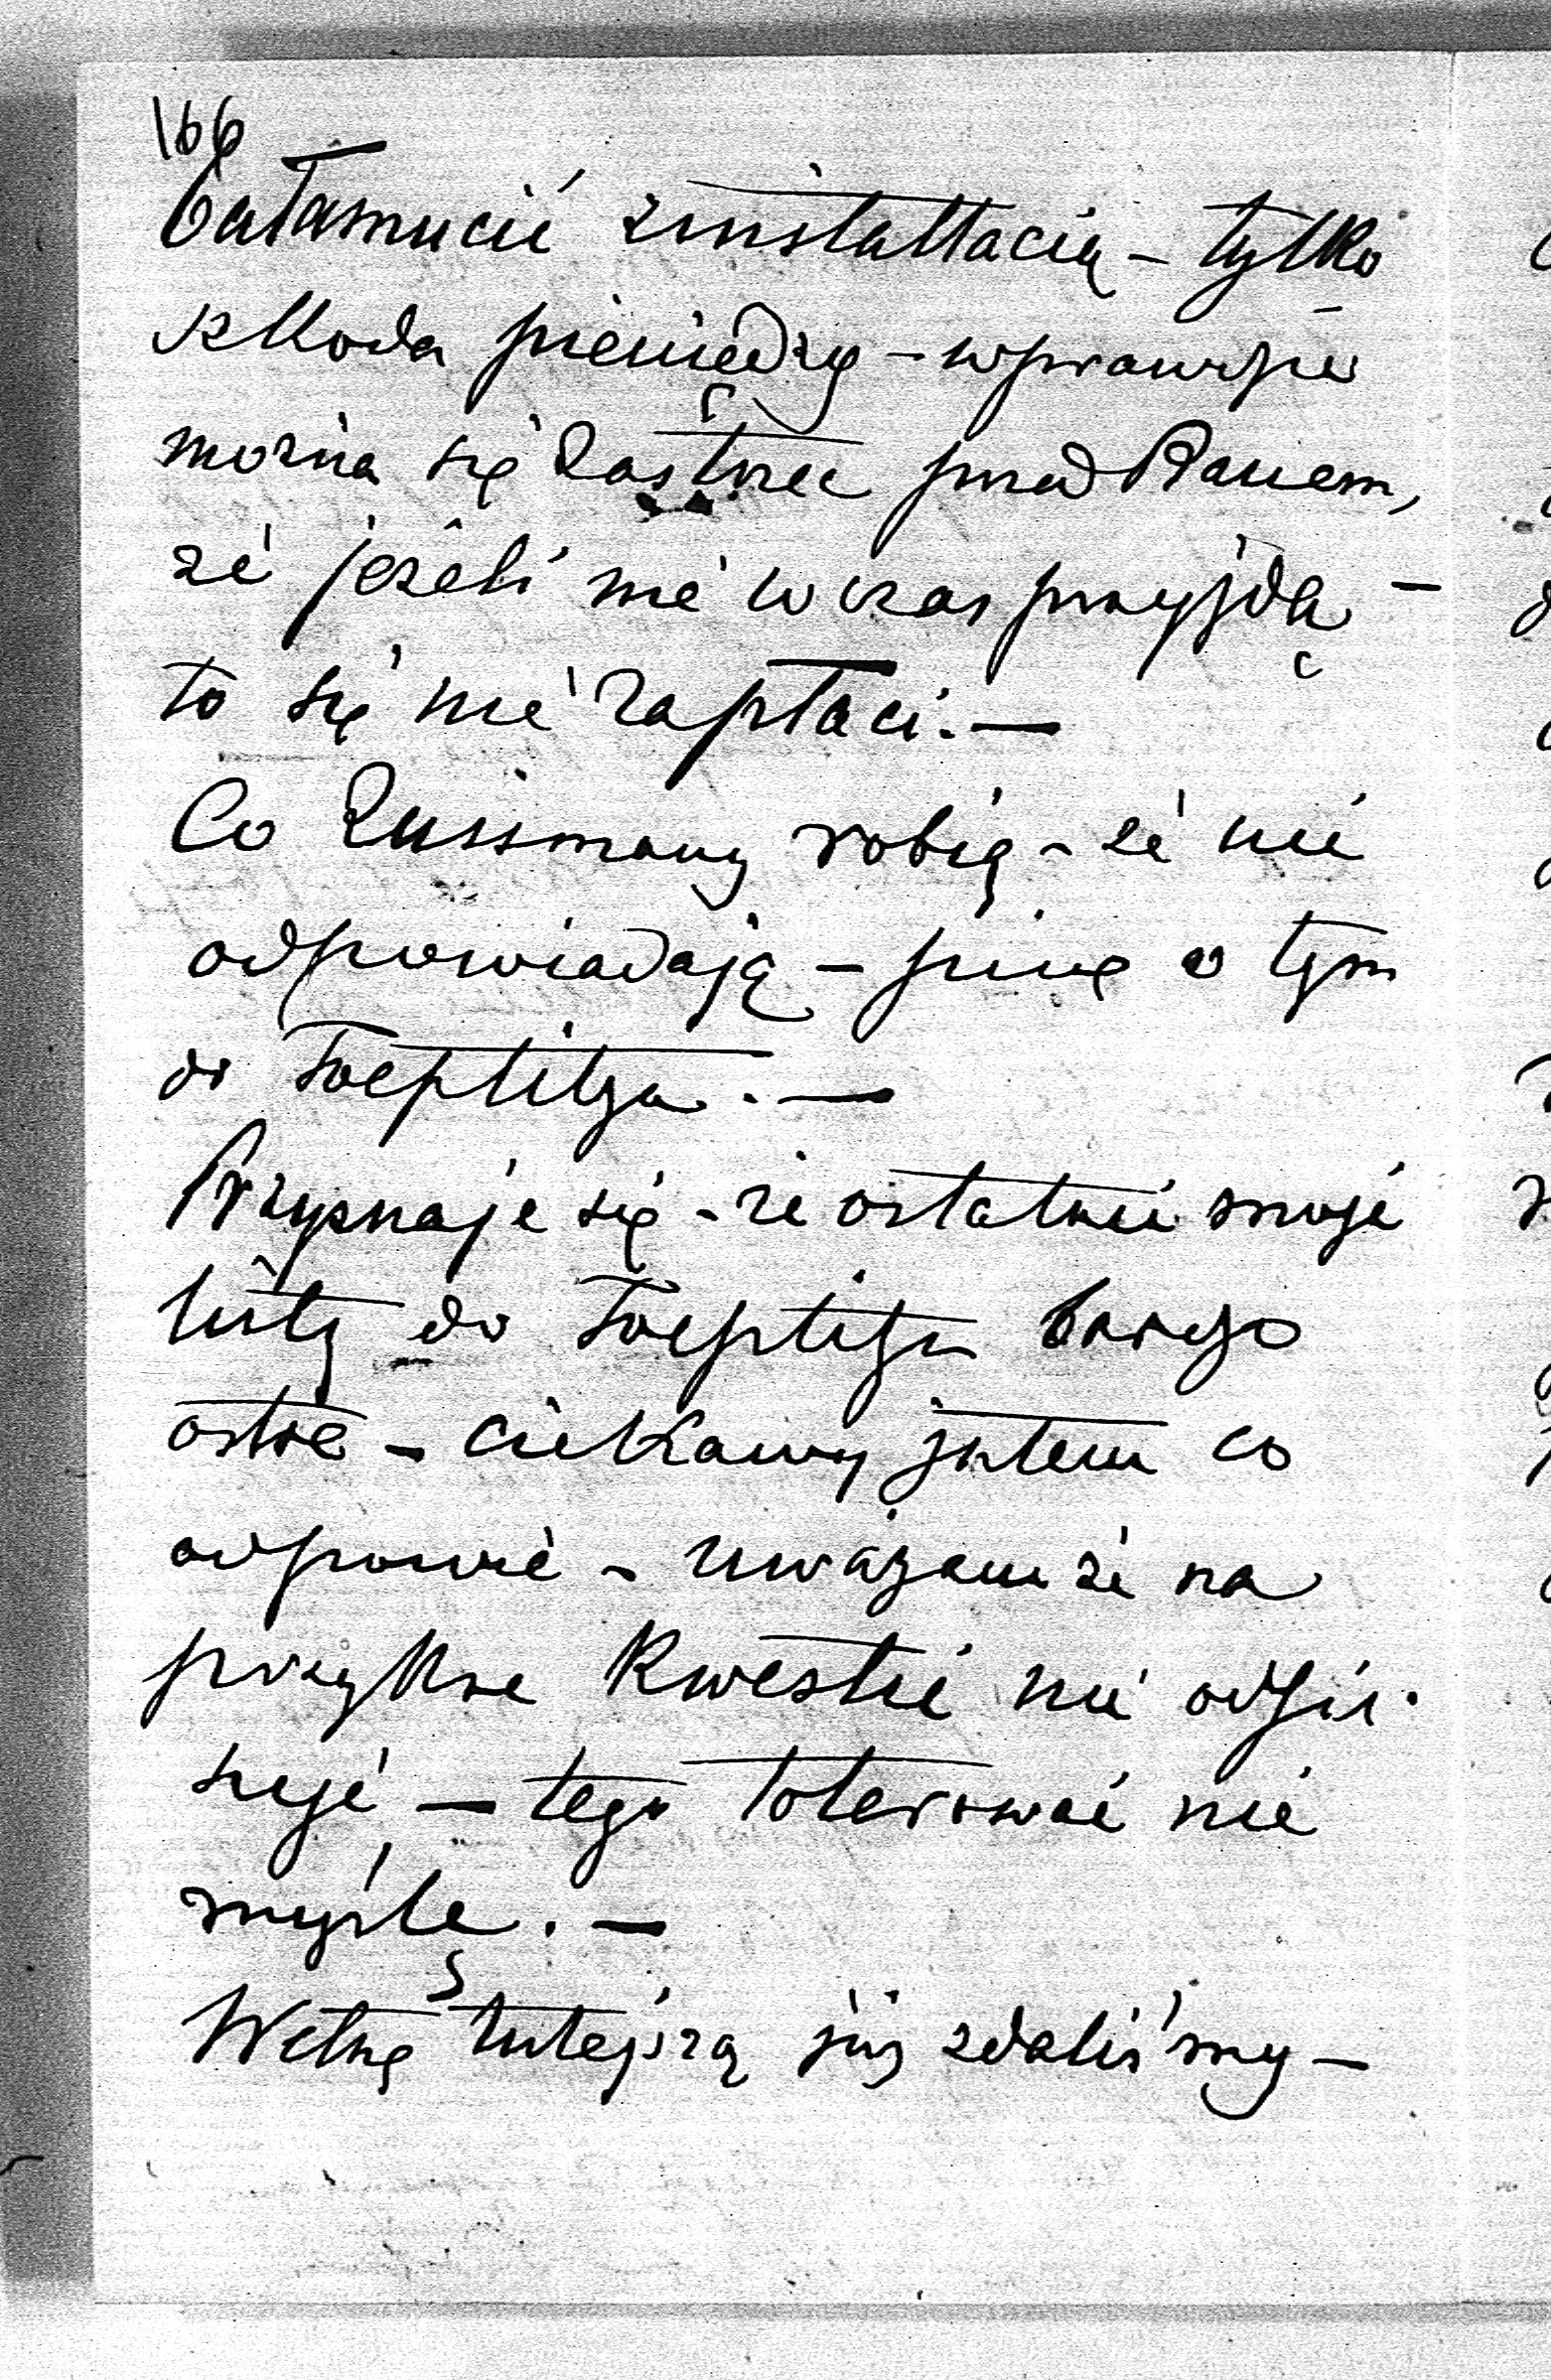 166
bałamucić z installacią – tylko
szkoda pieniędzy – wprawdzie
można się zastrzec przed Panem,
że jeżeli nie w czas przyjdą –
to się nie zapłaci. –
Co Zussmany robią – że nie
odpowiadają – piszę o tym
do Toeplitza. –
Przyznaje się – że ostatnie moje
listy do Toeplitza bardzo
ostre – ciekawy jestem co
odpowie – uważam że na
przykre kwestie nie odpi-
suje – tego tolerować nie
myślę. –
Wełnę tutejszą już zdaliśmy –